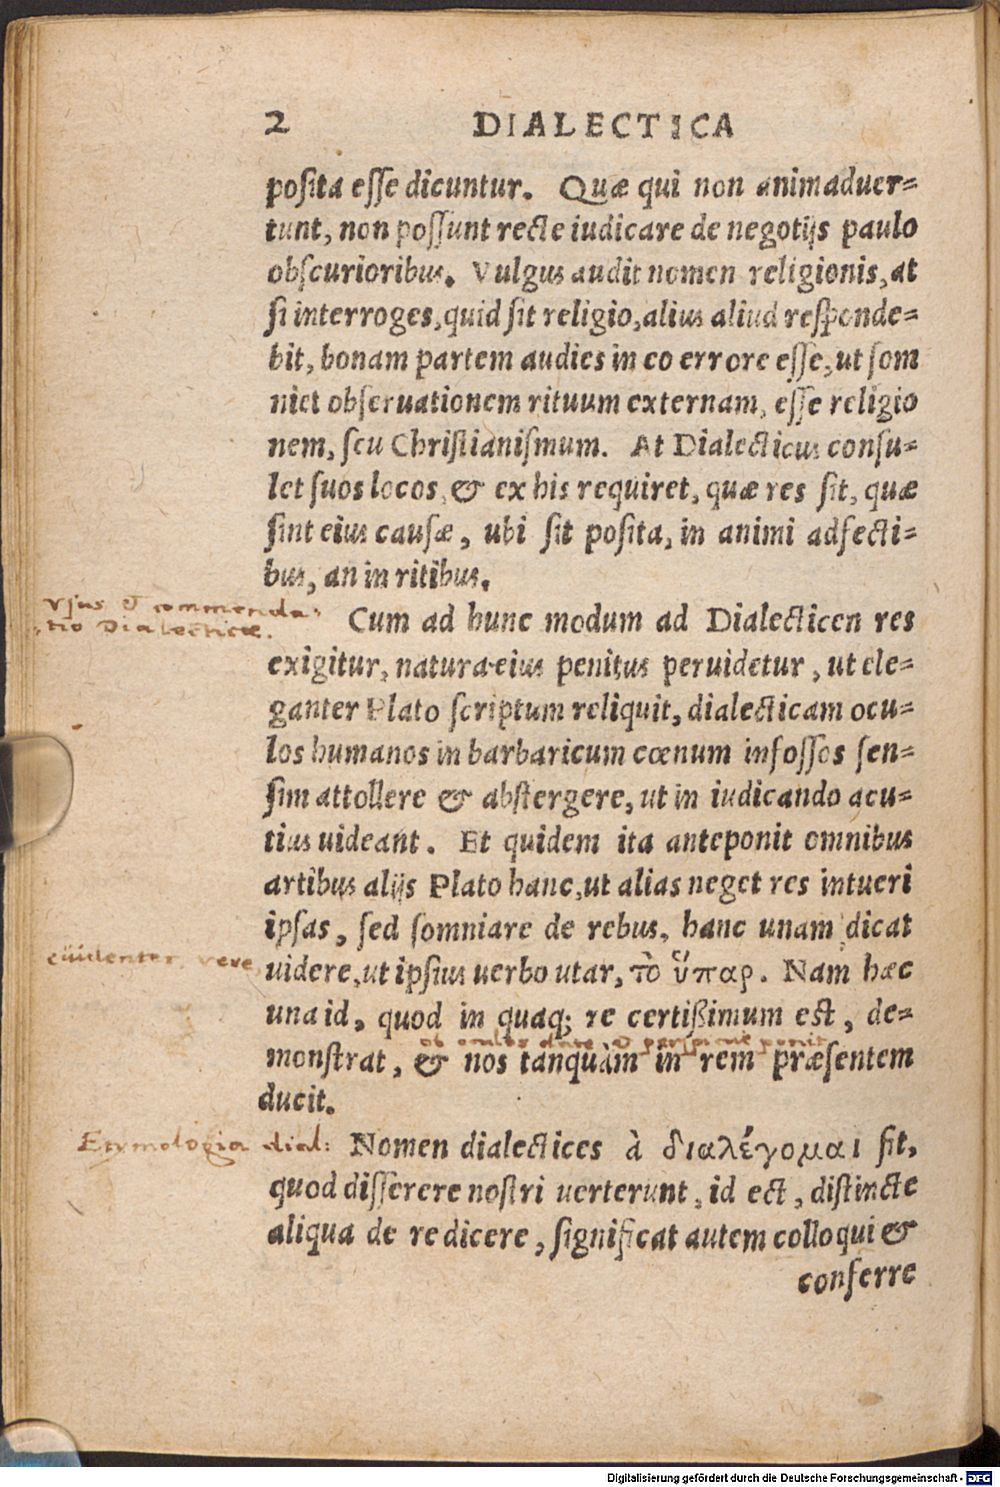 2 DIALECTICA
posita esse dicuntur. Quæ qui non animaduer=
tunt, non possunt recte iudicare de negotijs paulo
obscurioribus. Vulgus audit nomen religionis, at
si interroges, quid sit religio, alius aliud responde=
bit, bonam partem audies in eo errore esse, ut som
niet obseruationem rituum externam, esse religio
nem, seu Christianismum. At Dialecticus consu=
let suos locos, & ex his requiret, quæ res sit, quæ
sint eius causæ, ubi sit posita, in animi adfecti=
bus, an in ritibus.
Vsus et commenda=
tio Dialecticæ.
Cum ad hunc modum ad Dialecticen res
exigitur, natura eius penitus peruidetur, ut ele=
ganter Plato scriptum reliquit, dialecticam ocu=
los humanos in barbaricum cœnum infossos sen=
sim attollere & abstergere, ut in iudicando acu=
tius uideant. Et quidem ita anteponit omnibus
artibus alijs Plato hanc, ut alias neget res intueri
ipsas, sed somniare de rebus, hanc unam dicat
euidenter, vere
uidere, ut ipsius uerbo utar, τὸ ὕπαρ. Nam hæc
una id, quod in quaq; re certißimum est, de=
ob oculos dare et perspicue ponit
monstrat, & nos tanquàm in rem præsentem
ducit.
Etymologia dial:
Nomen dialectices à διαλέγομαι sit,
quod disserere nostri uerterunt, id est, distincte
aliqua de re dicere, significat autem colloqui &
conferre
Digitalisierung gefördert durch die Deutsche Forschungsgemeinschaft - DFG